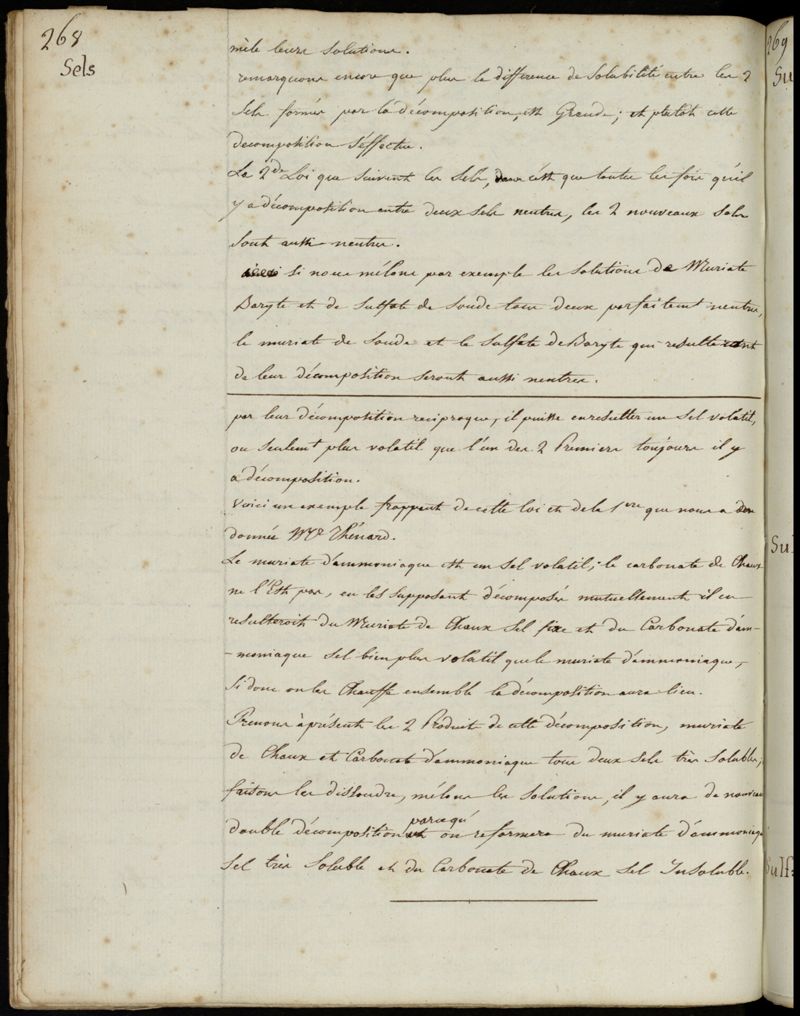 268
Sels
mêle leurs solutions.
remarquons encore que plus la différence de Solubilité entre les 2
Sels formés par la décomposition, est Grande; et plutôt cette
décomposition s'effectue.
La 2de Loi que suivent les Sels, c'est que toutes les fois qu'il
y a décomposition entre deux sels neutres, les 2 nouveaux sels
sont aussi neutres.
si nous mêlons par exemple les solutions de Muriate
Baryte et de Sulfate de Soude tous deux parfaitemt neutres,
le muriate de Soude et le Sulfate de Baryte qui resulteront
de leur décomposition seront aussi neutres.
par leur décomposition reciproque, il puisse en resulter un Sel volatil,
ou seulemt plus volatil que l'un des 2 Premiers toujours il y
a décomposition.
Voici un exemple frappant de cette loi et de la 1ere que nous a
donnée Mr Thénard.
Le muriate d'ammoniaque est un Sel volatil; le carbonate de Chaux
ne l'Est pas, en les Supposant décomposés mutuellement il en
resulteroit du Muriate de Chaux Sel fixe et du Carbonate d'am-
-moniaque Sel bien plus volatil que le muriate d'ammoniaque,
Si donc on les Chauffe ensemble la décomposition aura lieu.
Prenons àprésent les 2 Produits de cette décomposition, muriate
de Chaux et Carbonate d'ammoniaque tous deux Sels très Solubles,
faisons les dissoudre, mêlons les Solutions, il y aura de nouveau
double décomposition parcequ'
on reformera du muriate d'ammoniaque
Sel très Soluble et du Carbonate de Chaux Sel InSoluble.
269
Su
Sul
Sulf